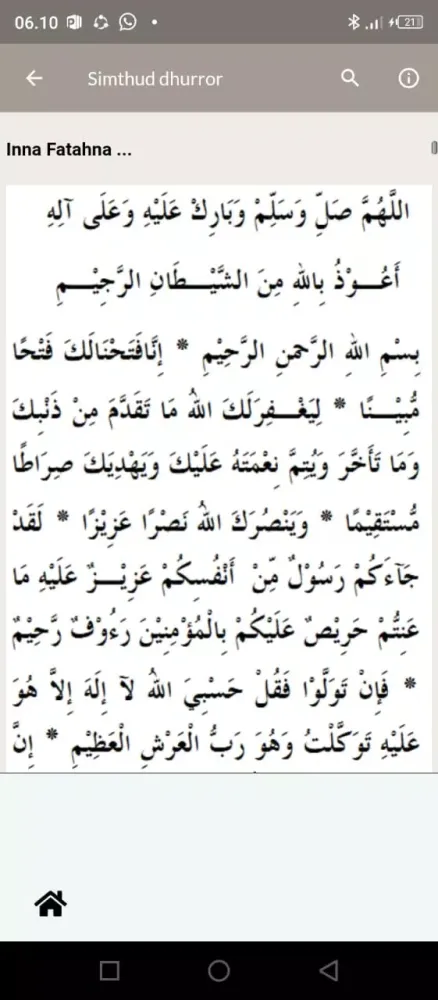 06.10
21
Simthud dhurror
Inna Fatahna ...
اللَّهُمَّ صَلِّ وَسَلِّمْ وَبَارِكْ عَلَيْهِ وَعَلَى آلِهِ
أَعُــوْذُ بِاللهِ مِنَ الشَّيْــطَانِ الرَّجِيْــمِ
بِسْمِ اللهِ الرَّحْمنِ الرَّحِيْمِ * إِنَّافَتَحْنَالَكَ فَتْحًا
مُّبِيْــنًا * لِيَغْــفِرَلَكَ اللهُ مَا تَقَدَّمَ مِنْ ذَنْبِكَ
وَمَا تَأَخَّرَ وَيُتِمَّ نِعْمَتَهُ عَلَيْكَ وَيَهْدِيَكَ صِرَاطًا
مُّسْتَقِيْمًا * وَيَنْصُرَكَ اللهُ نَصْرًا عَزِيْزًا * لَقَدْ
جَاءَكُمْ رَسُوْلٌ مِّنْ أَنْفُسِكُمْ عَزِيْــزٌ عَلَيْهِ مَا
عَنِتُّمْ حَرِيْصٌ عَلَيْكُمْ بِالْمُؤْمِنِيْنَ رَءُوْفٌ رَّحِيْمٌ
* فَإِنْ تَوَلَّوْا فَقُلْ حَسْبِيَ اللهُ لآ إِلَهَ إِلاَّ هُوَ
عَلَيْهِ تَوَكَّلْتُ وَهُوَ رَبُّ الْعَرْشِ الْعَظِيْمِ * إِنَّ